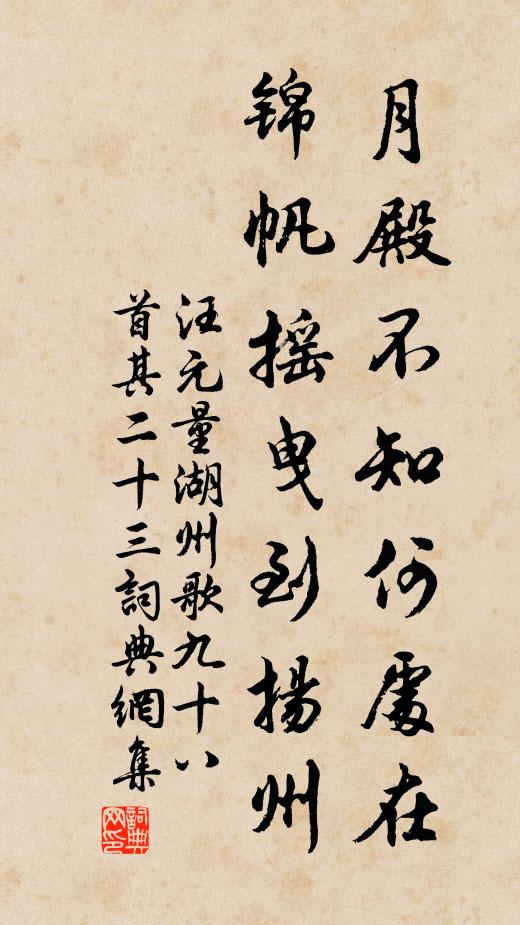 月殿不知何處在
锦帆摇曳到揚州
汪元量湖州歌九十八
首其二十三詞典網集
詞典网印